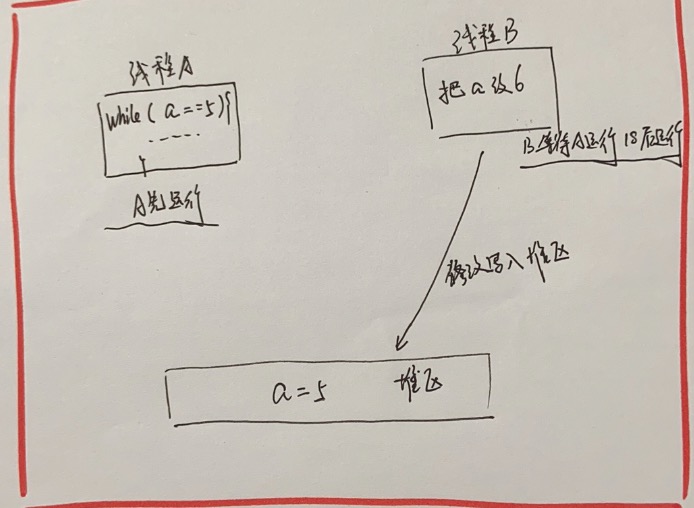 线程A
while(a==5){
......
A先运行
线程B
把a改6
B等待A运行1s后运行
修改写入堆区
a=5 堆区